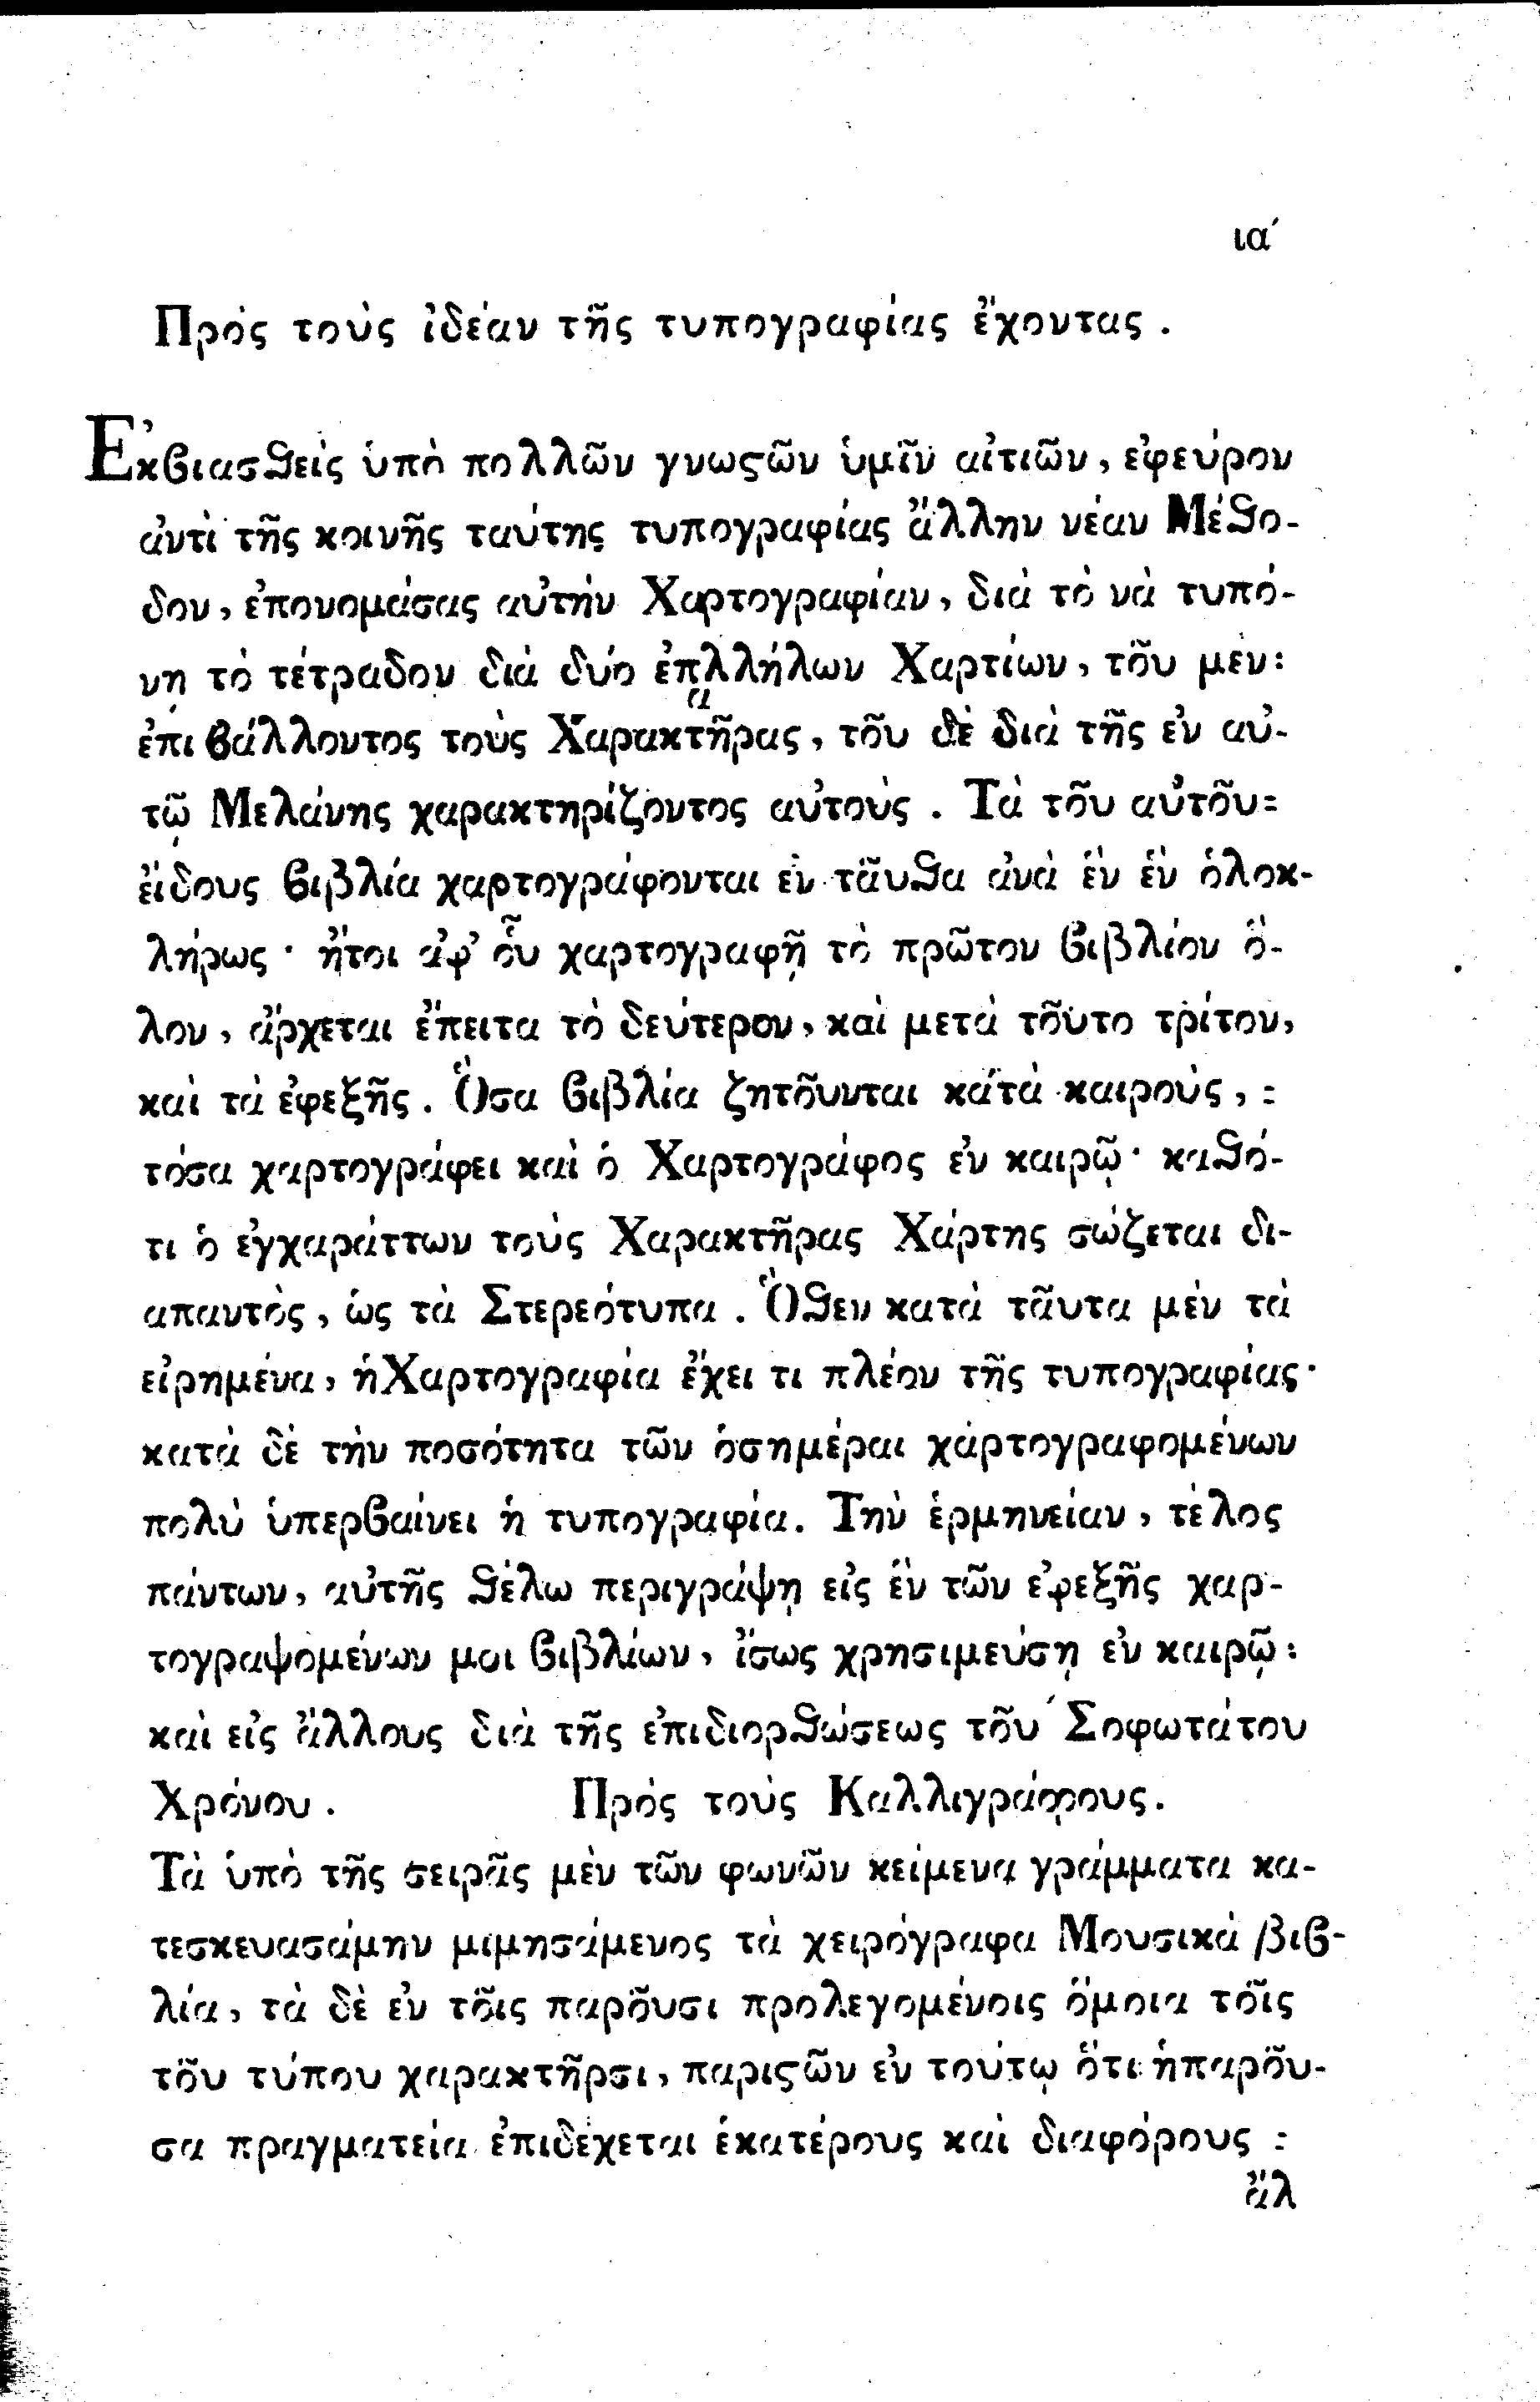 ια´
Πρὸς τοὺς ἰδέαν τῆς τυπογραφίας ἔχοντας .
Ἐκϐιασϑεὶς ὑπὸ πολλῶν γνωςῶν ὑμῖν αἰτιῶν, ἐφεύρον
ἀντὶ τῆς κοινῆς ταύτης τυπογραφίας ἄλλην νέαν Μέϑο-
δον, ἐπονομάσας αὐτὴν Χαρτογραφίαν, διὰ τὸ νὰ τυπό-
νῃ τὸ τέτραδον διὰ δύο ἐπαλλήλων Χαρτίων, τοῦ μὲν:
ἐπιϐάλλοντος τοὺς Χαρακτῆρας, τοῦ δὲ διὰ τῆς ἐν αὐ-
τῷ Μελάνης χαρακτηρίζοντος αὐτοὺς . Τὰ τοῦ αὐτοῦ=
εἴδους ϐιβλία χαρτογράφονται ἐν ταῦϑα ἀνὰ ἓν ἓν ὁλοκ-
λήρως · ἤτοι ἀφ’ οὗ χαρτογραφῇ τὸ πρῶτον ϐιβλίον ὅ-
λον, ἄρχεται ἔπειτα τὸ δεύτερον, καὶ μετὰ τοῦτο τρίτον,
καὶ τὰ ἐφεξῆς. Ὅσα ϐιβλία ζητοῦνται κατὰ καιροὺς, =
τόσα χαρτογράφει καὶ ὁ Χαρτογράφος ἐν καιρῷ· καϑό-
τι ὁ ἐγχαράττων τοὺς Χαρακτῆρας Χάρτης σώζεται δι-
απαντὸς, ὡς τὰ Στερεότυπα . Ὅϑεν κατὰ ταῦτα μὲν τὰ
εἰρημένα, ἡ Χαρτογραφία ἔχει τι πλέον τῆς τυπογραφίας·
κατὰ δὲ τὴν ποσότητα τῶν ὁσημέραι χαρτογραφομένων
πολὺ ὑπερϐαίνει ἡ τυπογραφία. Τὴν ἑρμηνείαν, τέλος
πάντων, αὐτῆς ϑέλω περιγράψῃ εἰς ἓν τῶν ἐφεξῆς χαρ-
τογραψομένων μοι ϐιβλίων, ἴσως χρησιμεύσῃ ἐν καιρῷ:
καὶ εἰς ἄλλους διὰ τῆς ἐπιδιορϑώσεως τοῦ Σοφωτάτου
Χρόνου . Πρὸς τοὺς Καλλιγράφους.
Τὰ ὑπὸ τῆς σειρᾶς μὲν τῶν φωνῶν κείμενα γράμματα κα-
τεσκευασάμην μιμησάμενος τὰ χειρόγραφα Μουσικὰ βιϐ-
λία, τὰ δὲ ἐν τοῖς παροῦσι προλεγομένοις ὅμοια τοῖς
τοῦ τύπου χαρακτῆρσι, παριςῶν ἐν τούτῳ ὅτι ἡ παροῦ-
σα πραγματεία ἐπιδέχεται ἑκατέρους καὶ διαφόρους =
ἄλ